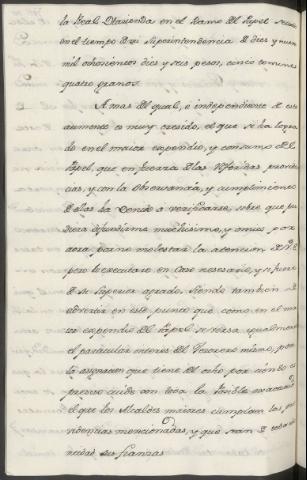 la Real Hacienda en el Ramo del Papel
en el tiempo de mi Superintendencia de diez y nueve
mil ochocientos diez y seis pesos, cinco tomines
quatro granos.
A mas del qual, é independiente de este
aumento es muy crecido, el que se ha logra
do en el maior expendio, y consumo del
Papel, que en fuerza de las referidas providen
cias, y con la observancia, y cumplimiento
de ellas ha venido á verificarse, sobre que pu
diera difundirme muchisimo, y omito por
aora, por no molestar la atencion de V.E.
pero lo executaré en caso necesario, y si fuere
de su Superior agrado, siendo tambien de
advertir en este punto que como en el ma
ior expendio del Papel se versa igualmente
el particular interes del Tesorero mismo, por
la asignacion que tiene del ocho por ciento es
preciso cuide con toda la posible exactitud
el que los Alcaldes maiores cumplan las pro
videncias mencionadas, y que sean
sus fianzas